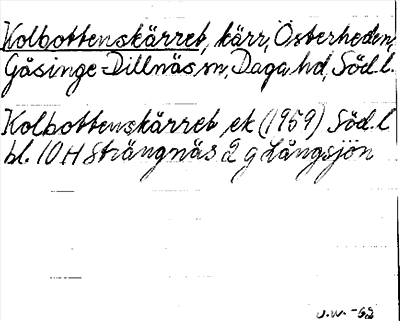 Kolbottenskärret, kärr, Österheden,
Gåsinge-Dillnäs sn, Daga hd, Söd. l.
Kolbottenskärret, ek (1959) Söd. l
bl. 10 H Strängnäs 2 g Långsjön
U.W. -62